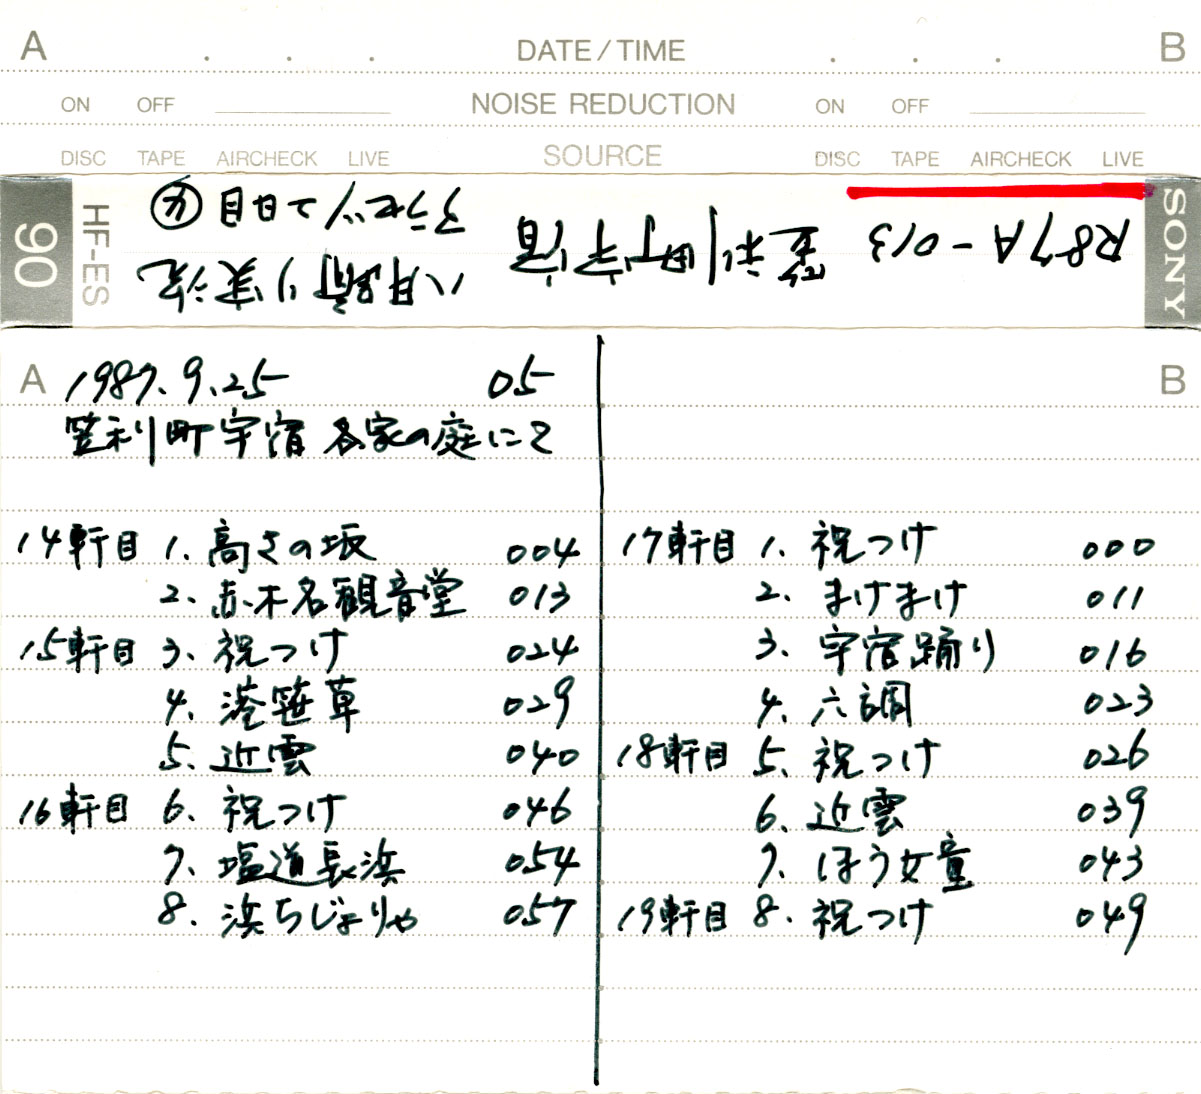 A . . . DATE/TIME . . . B
ON OFF NOISE REDUCTION ON OFF
DISC TAPE AIRCHECK LIVE SOURCE DISC TAPE AIRCHECK LIVE
SONY
R87A-013
笠利町宇宿
八月踊り実況
アラセツ2日目④
HF-ES
90
A 1987.9.25 05
笠利町宇宿 各家の庭にて
14軒目 1. 高さの坂 004
2. 赤木名観音堂 013
15軒目 3. 祝つけ 024
4. 港笹草 029
5. 近雲 040
16軒目 6. 祝つけ 046
7. 塩道長浜 054
8. 浜ちじょりゃ 057
B
17軒目 1. 祝つけ 000
2. まけまけ 011
3. 宇宿踊り 016
4. 六調 023
18軒目 5. 祝つけ 026
6. 近雲 039
7. ほう女童 043
19軒目 8. 祝つけ 049